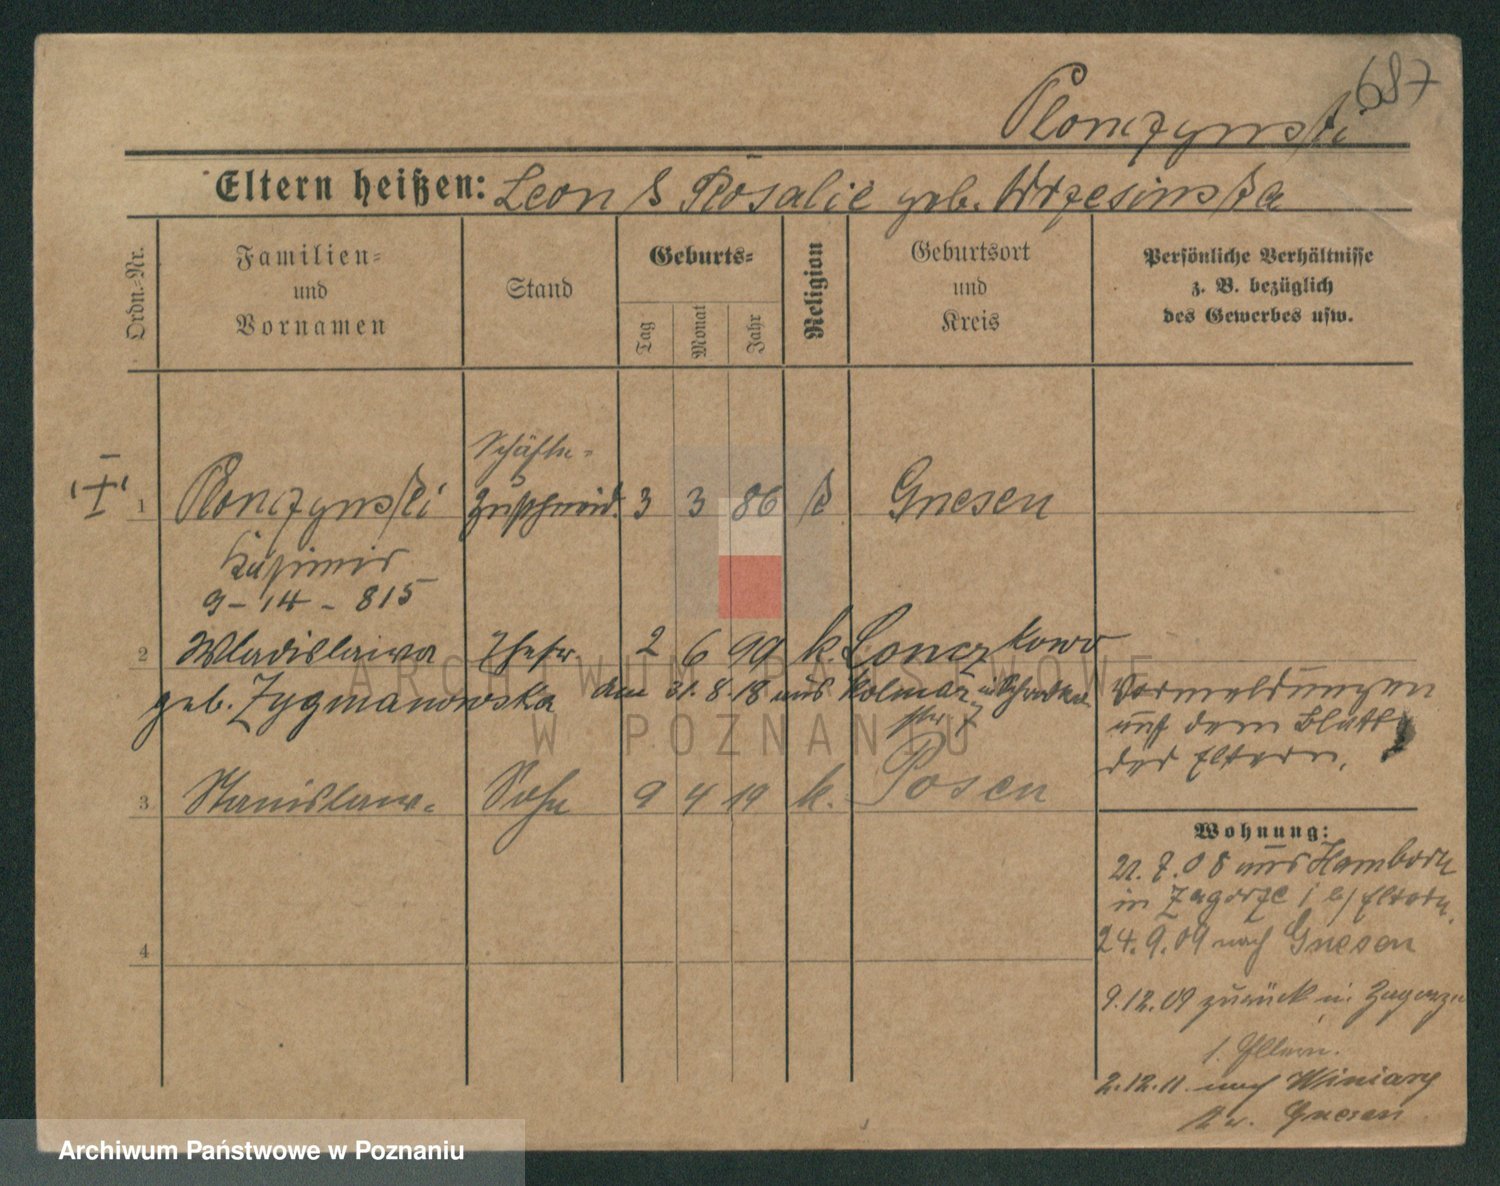 687
Plonczynski
Eltern heißen: Leon & Rosalie geb. Wrzesinska
Ordn.-Nr.
Familien-
und
Vornamen
Stand
Geburts-
Tag
Monat
Jahr
Religion
Geburtsort
und
Kreis
Persönliche Verhältnisse
z. B. bezüglich
des Gewerbes usw.
Schäfte-
1 Plonczynski Zuschneid. 3 3 86 k Gnesen
Kasimir
9-14-815
2 Wladislawa Ehefr. 2 6 99 k. Lonczkowo
geb. Zygmanowska am 31.8.18 aus Kolmar
Vormeldungen
auf dem Blatte
der Eltern.
3 Stanislaw Sohn 9 4 19 k. Posen
Wohnung:
21.7.08 aus Hamborn
in Zagorze 1 b/ Eltern.
24.9.09 nach Gnesen
9.12.09 zurück in Zagorze
1. Eltern.
2.12.11 nach Winiary
Kr. Gnesen
4
ARCHIWUM PAŃSTWOWE
W POZNANIU
Archiwum Państwowe w Poznaniu